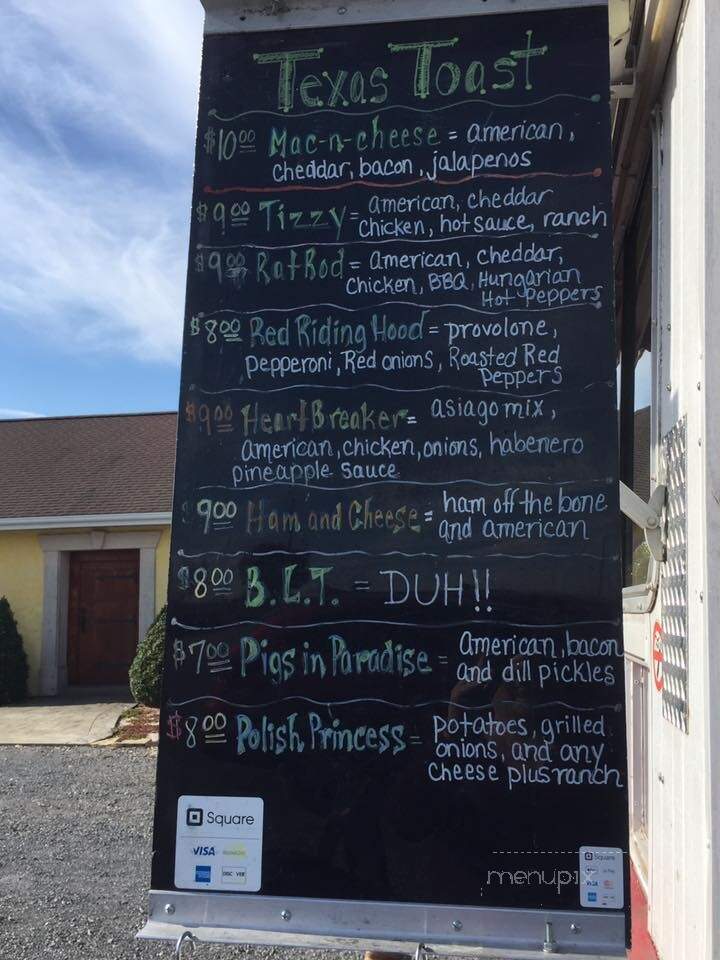 Texas Toast
$10.00 Mac-n-cheese = american,
cheddar, bacon, jalapenos
$9.00 Tizzy = american, cheddar
chicken, hot sauce, ranch
$9.00 RatRod = american, cheddar,
Chicken, BBQ, Hungarian
Hot Peppers
$8.00 Red Riding Hood = provolone,
pepperoni, Red onions, Roasted Red
Peppers
$9.00 HeartBreaker = asiago mix,
american, chicken, onions, habenero
pineapple sauce
$9.00 Ham and Cheese = ham off the bone
and american
$8.00 B.L.T. = DUH!!
$7.00 Pigs in Paradise = American, bacon
and dill pickles
$8.00 Polish Princess = potatoes, grilled
onions, and any
cheese plus ranch
Square
VISA
DISCOVER
Square
VISA
menupix